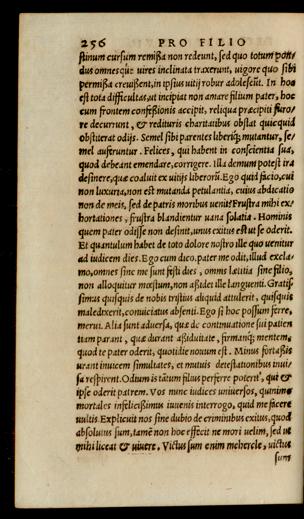 256 PRO FILIO
stinum cursum remissa non redeunt, sed quo totum pon
dus omnesq́ue uires inclinata traxerunt, uigore quo sibi
permissa creuissent, in ipsius uitij robur adolescũt. In hoc
est tota difficultas, ut incipiat non amare filium pater, hoc
cum frontem confessionis accipit, reliqua præcipiti furo/
re decurrunt, & redituris charitatibus obstat quicquid
obstiterat odijs. Semel sibi parentes liberiq́; mutantur, se/
mel auferuntur. Felices, qui habent in conscientia sua,
quod debeant emendare, corrigere. Illa demum potest ira
desinere, quæ coaluit ex uitijs liberorũ. Ego quid facio, cui
non luxuria, non est mutanda petulantia, cuius abdicatio
non de meis, sed de patris moribus uenit? Frustra mihi ex/
hortationes, frustra blandientur uana solatia. Hominis
quem pater odisse non desint, unus exitus est ut se oderit.
Et quantulum habet de toto dolore nostro ille quo uenitur
ad iudicem dies. Ego cum dico, pater me odit, illud excla/
mo, omnes sinc me sunt festi dies, omnis lætitia sine filio,
non alloquitur mœstum, non assidet ille languenti. Gratis/
simus quisquis de nobis tristius aliquid attulerit, quisquis
maledixerit, conuiciatus absenti. Ego si hoc possum ferre,
merui. Alia sunt aduersa, quæ de continuatione sui patien
tiam parant, quæ durant assiduitate, firmanq́; mentem,
quod te pater oderit, quotidie nouum est. Minus fortassis
urant inuicem simultates, et mutuis detestationibus inui/
sa respirent. Odium is tãtum filius perferre poterit, qui &
ipse oderit patrem. Vos nunc iudices uniuersos, quinimo
mortales infelicissimus iuuenis interrogo, quid me facere
uultis. Explicuit nos sine dubio de criminibus exitus, quod
absoluimur sum, tamẽ non hoc effecit ne mori uelim, sed ut
mihi liceat & uiuere. Victus sum enim mehercle, uictus
sum